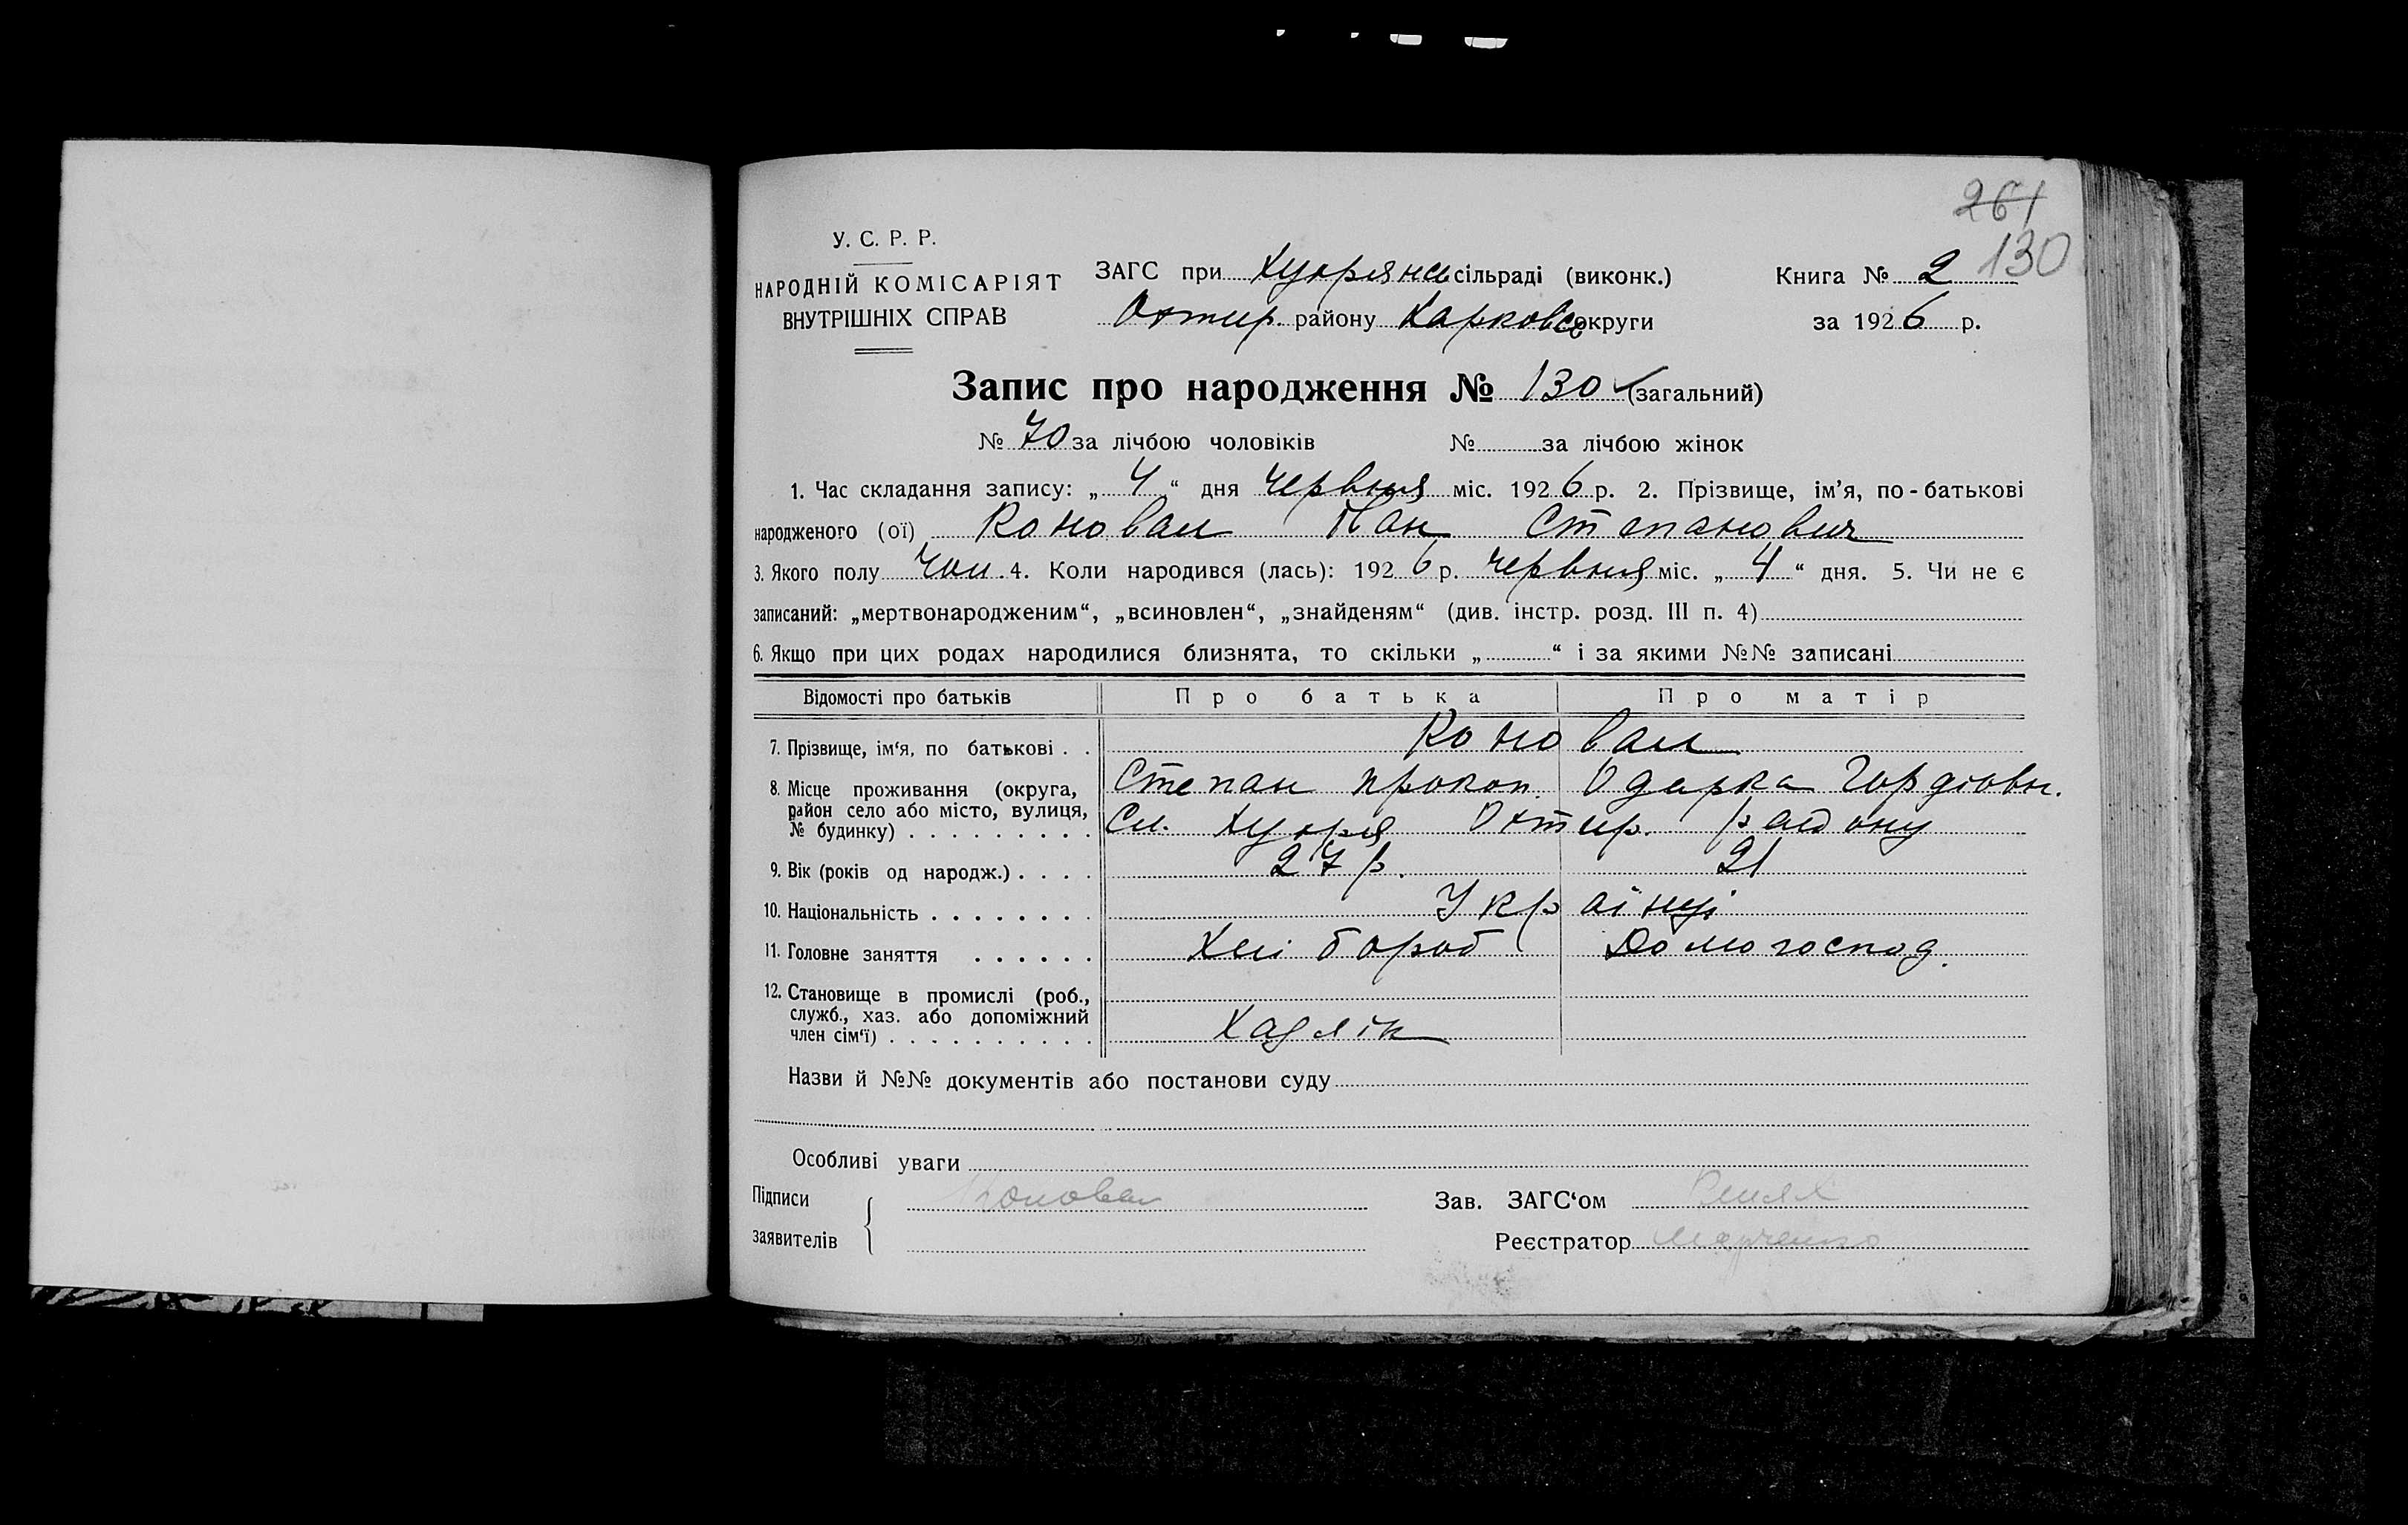 261
130
У. С. Р. Р.
НАРОДНІЙ КОМІСАРІЯТ
ВНУТРІШНІХ СПРАВ
ЗАГС при Хухрянсь сільраді (виконк.)
Охтир. району Харковсо округи
Книга № 2
за 1926 р.
Запис про народження № 130 (загальний)
№ 70 за лічбою чоловіків № за лічбою жінок
1. Час складання запису: „ 4 “ дня червня міс. 1926 р. 2. Прізвище, ім’я, по-батькові
народженого (ої) Коновал Іван Степанович
3. Якого полу чол. 4. Коли народився (лась): 1926 р. червня міс. „ 4 “ дня. 5. Чи не є
записаний: „мертвонародженим“, „всиновлен“, „знайденям“ (див. інстр. розд. III п. 4)
6. Якщо при цих родах народилися близнята, то скільки „ “ і за якими №№ записані
Відомості про батьків Про батька Про матір
7. Прізвище, ім‘я, по батькові . . Коновал
8. Місце проживання (округа, Степан Прокоп. Одарка Гордіовн.
район село або місто, вулиця,
№ будинку) . . . . . . . . . Сл. Хухря Охтир. району
9. Вік (років од народж.) . . . . 27 р. 21
10. Національність . . . . . . . . Українці
11. Головне заняття . . . . . . Хлібороб Домогоспод.
12. Становище в промислі (роб.,
служб., хаз. або допоміжний
член сім‘ї) . . . . . . . . . .
Назви й №№ документів або постанови суду
Особливі уваги
Підписи Коновал Зав. ЗАГС‘ом
заявителів Реєстратор Марченко